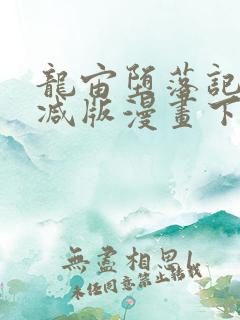 龍宙墮落記
减版漫畫下
無盡相思
未经同意禁止转载